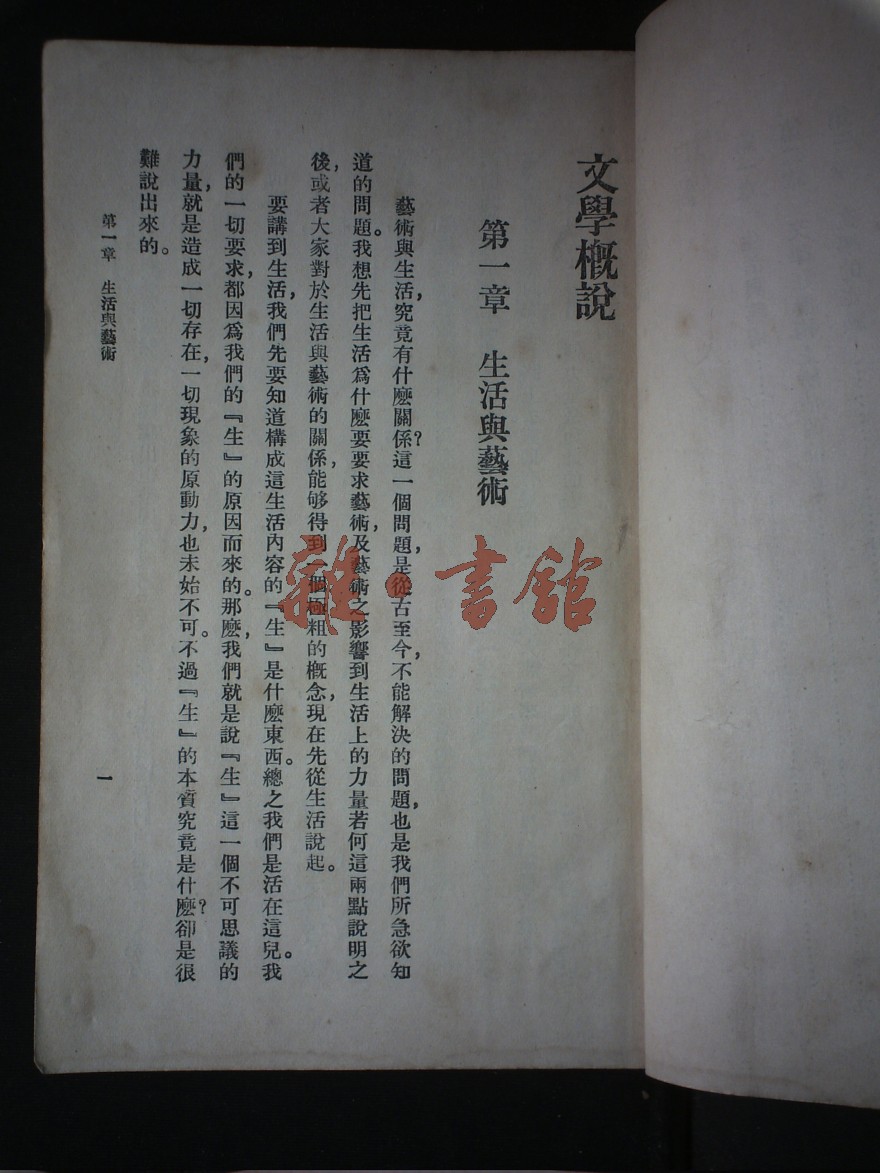 文學概說
第一章　生活與藝術
藝術與生活，究竟有什麼關係？這一個問題，是從古至今，不能解決的問題，也是我們所急欲知
道的問題。我想先把生活爲什麼要要求藝術，及藝術之影響到生活上的力量若何這兩點說明之
後，或者大家對於生活與藝術的關係，能够得到一個極粗的概念，現在先從生活說起。
要講到生活，我們先要知道構成這生活內容的『生』是什麼東西。總之我們是活在這兒。我
們的一切要求，都因爲我們的『生』的原因而來的。那麼，我們就是說『生』這一個不可思議的
力量，就是造成一切存在，一切現象的原動力，也未始不可。不過『生』的本質究竟是什麼？卻是很
難說出來的。
第一章　生活與藝術
一
雜·書館